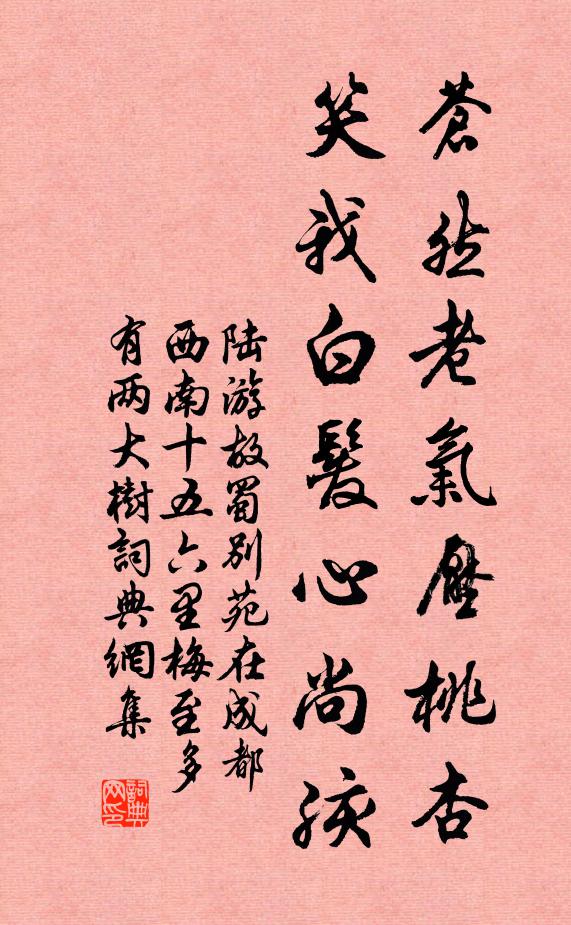 蒼然老氣壓桃杏
笑我白髮心尚孩
陆游故蜀别苑在成都
西南十五六里梅至多
有两大樹詞典網集
詞典网印